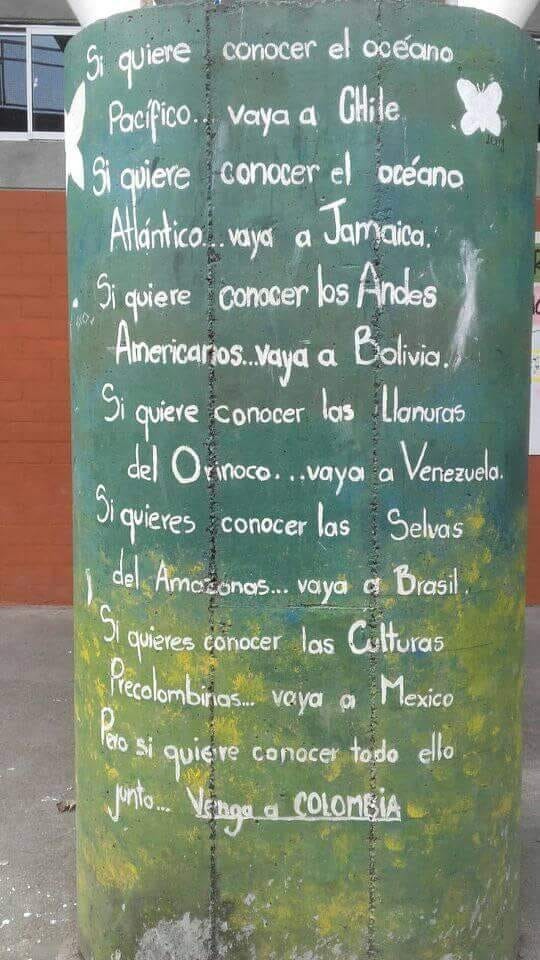 Si quiere conocer el océano
Pacífico... vaya a CHile
Si quiere conocer el océano
Atlántico...vaya a Jamaica.
Si quiere conocer los Andes
Americanos...vaya a Bolivia.
Si quiere conocer las Llanuras
del Orinoco...vaya a Venezuela.
Si quieres conocer las Selvas
del Amazonas... vaya a Brasil.
Si quieres conocer las Culturas
Precolombinas... vaya a Mexico
Pero si quiere conocer todo ello
junto... Venga a COLOMBIA